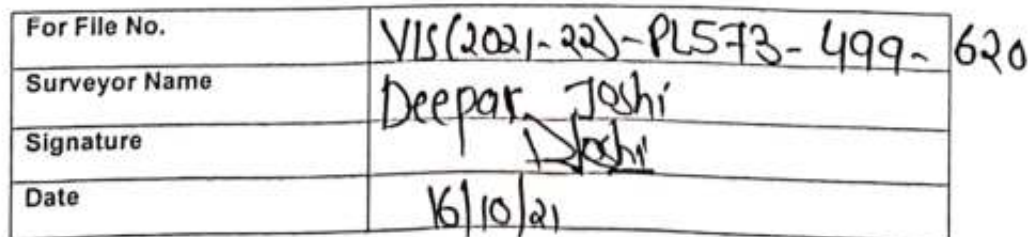 For File No. VIS(2021-22)-PL573-499-620
Surveyor Name Deepak Joshi
Signature DJoshi
Date 16/10/21